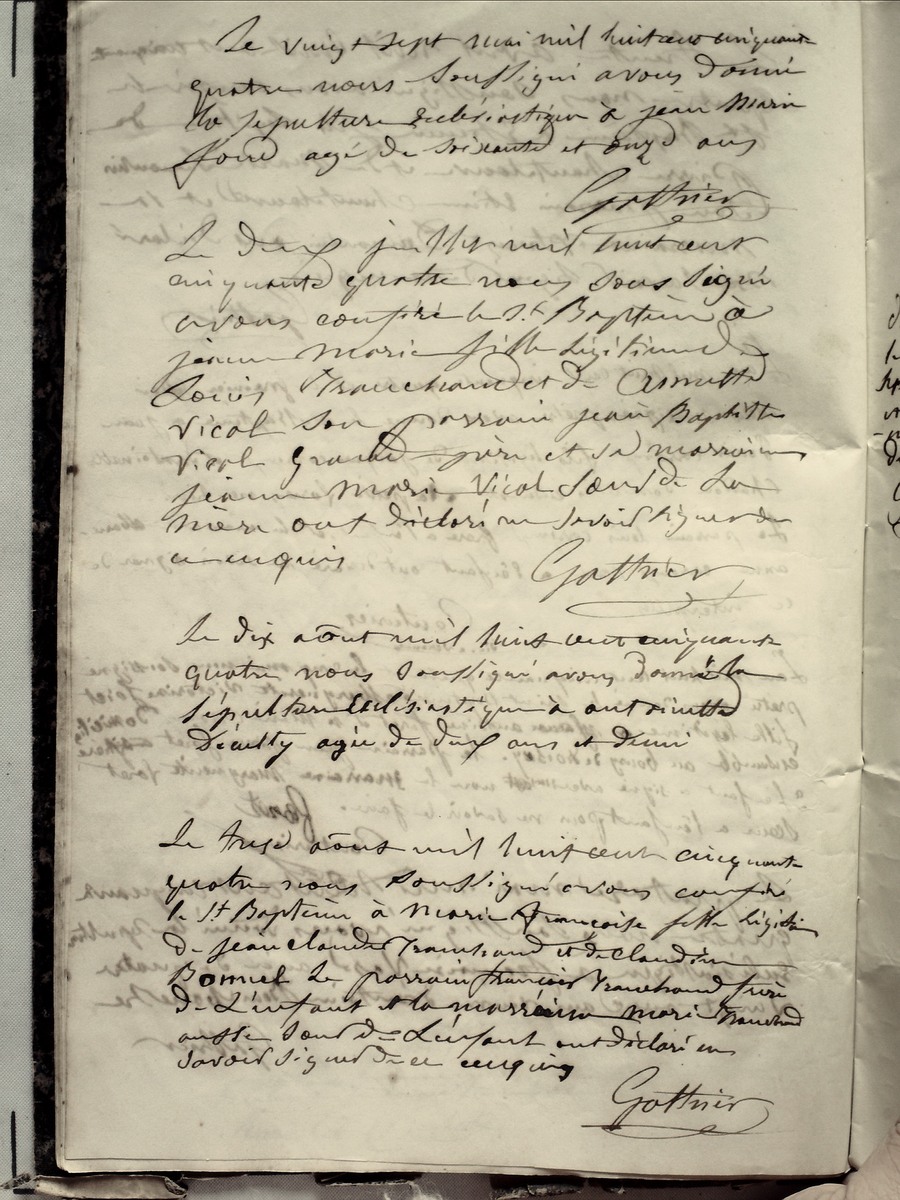 Le vingt sept mai mil huit cent cinquante
quatre nous soussigné avons donné
la sepulture ecclésiastique à jean Marie
agé de soixante et onze ans
Gottrier
Le deux juillet mil huit cent
cinquante quatre nous sous signé
avons conféré le St Baptème à
jeanne Marie fille légitime de
Louis Tranchand et de
Vical son parrain jean Baptiste
Vical Grand père et sa marraine
jeanne Marie Vical sœur de La
mère ont déclaré ne savoir signer de
ce enquis
Gottrier
Le dix aôut mil huit cent cinquante
quatre nous soussigné avons donné la
sépulture Ecclésiastique à antoinette
agée de deux ans et demi
Le treise aôut mil huit cent cinquante
quatre nous soussigné avons conféré
le St Baptème à Marie Françoise fille légitime
de jean claude Tranchand et de claudine
Le parrain francois Tranchand frère
de L'enfant et la marraine Marie Tranchand
aussi sœur de L'enfant ont déclaré ne
savoir signer de ce enquis
Gottrier